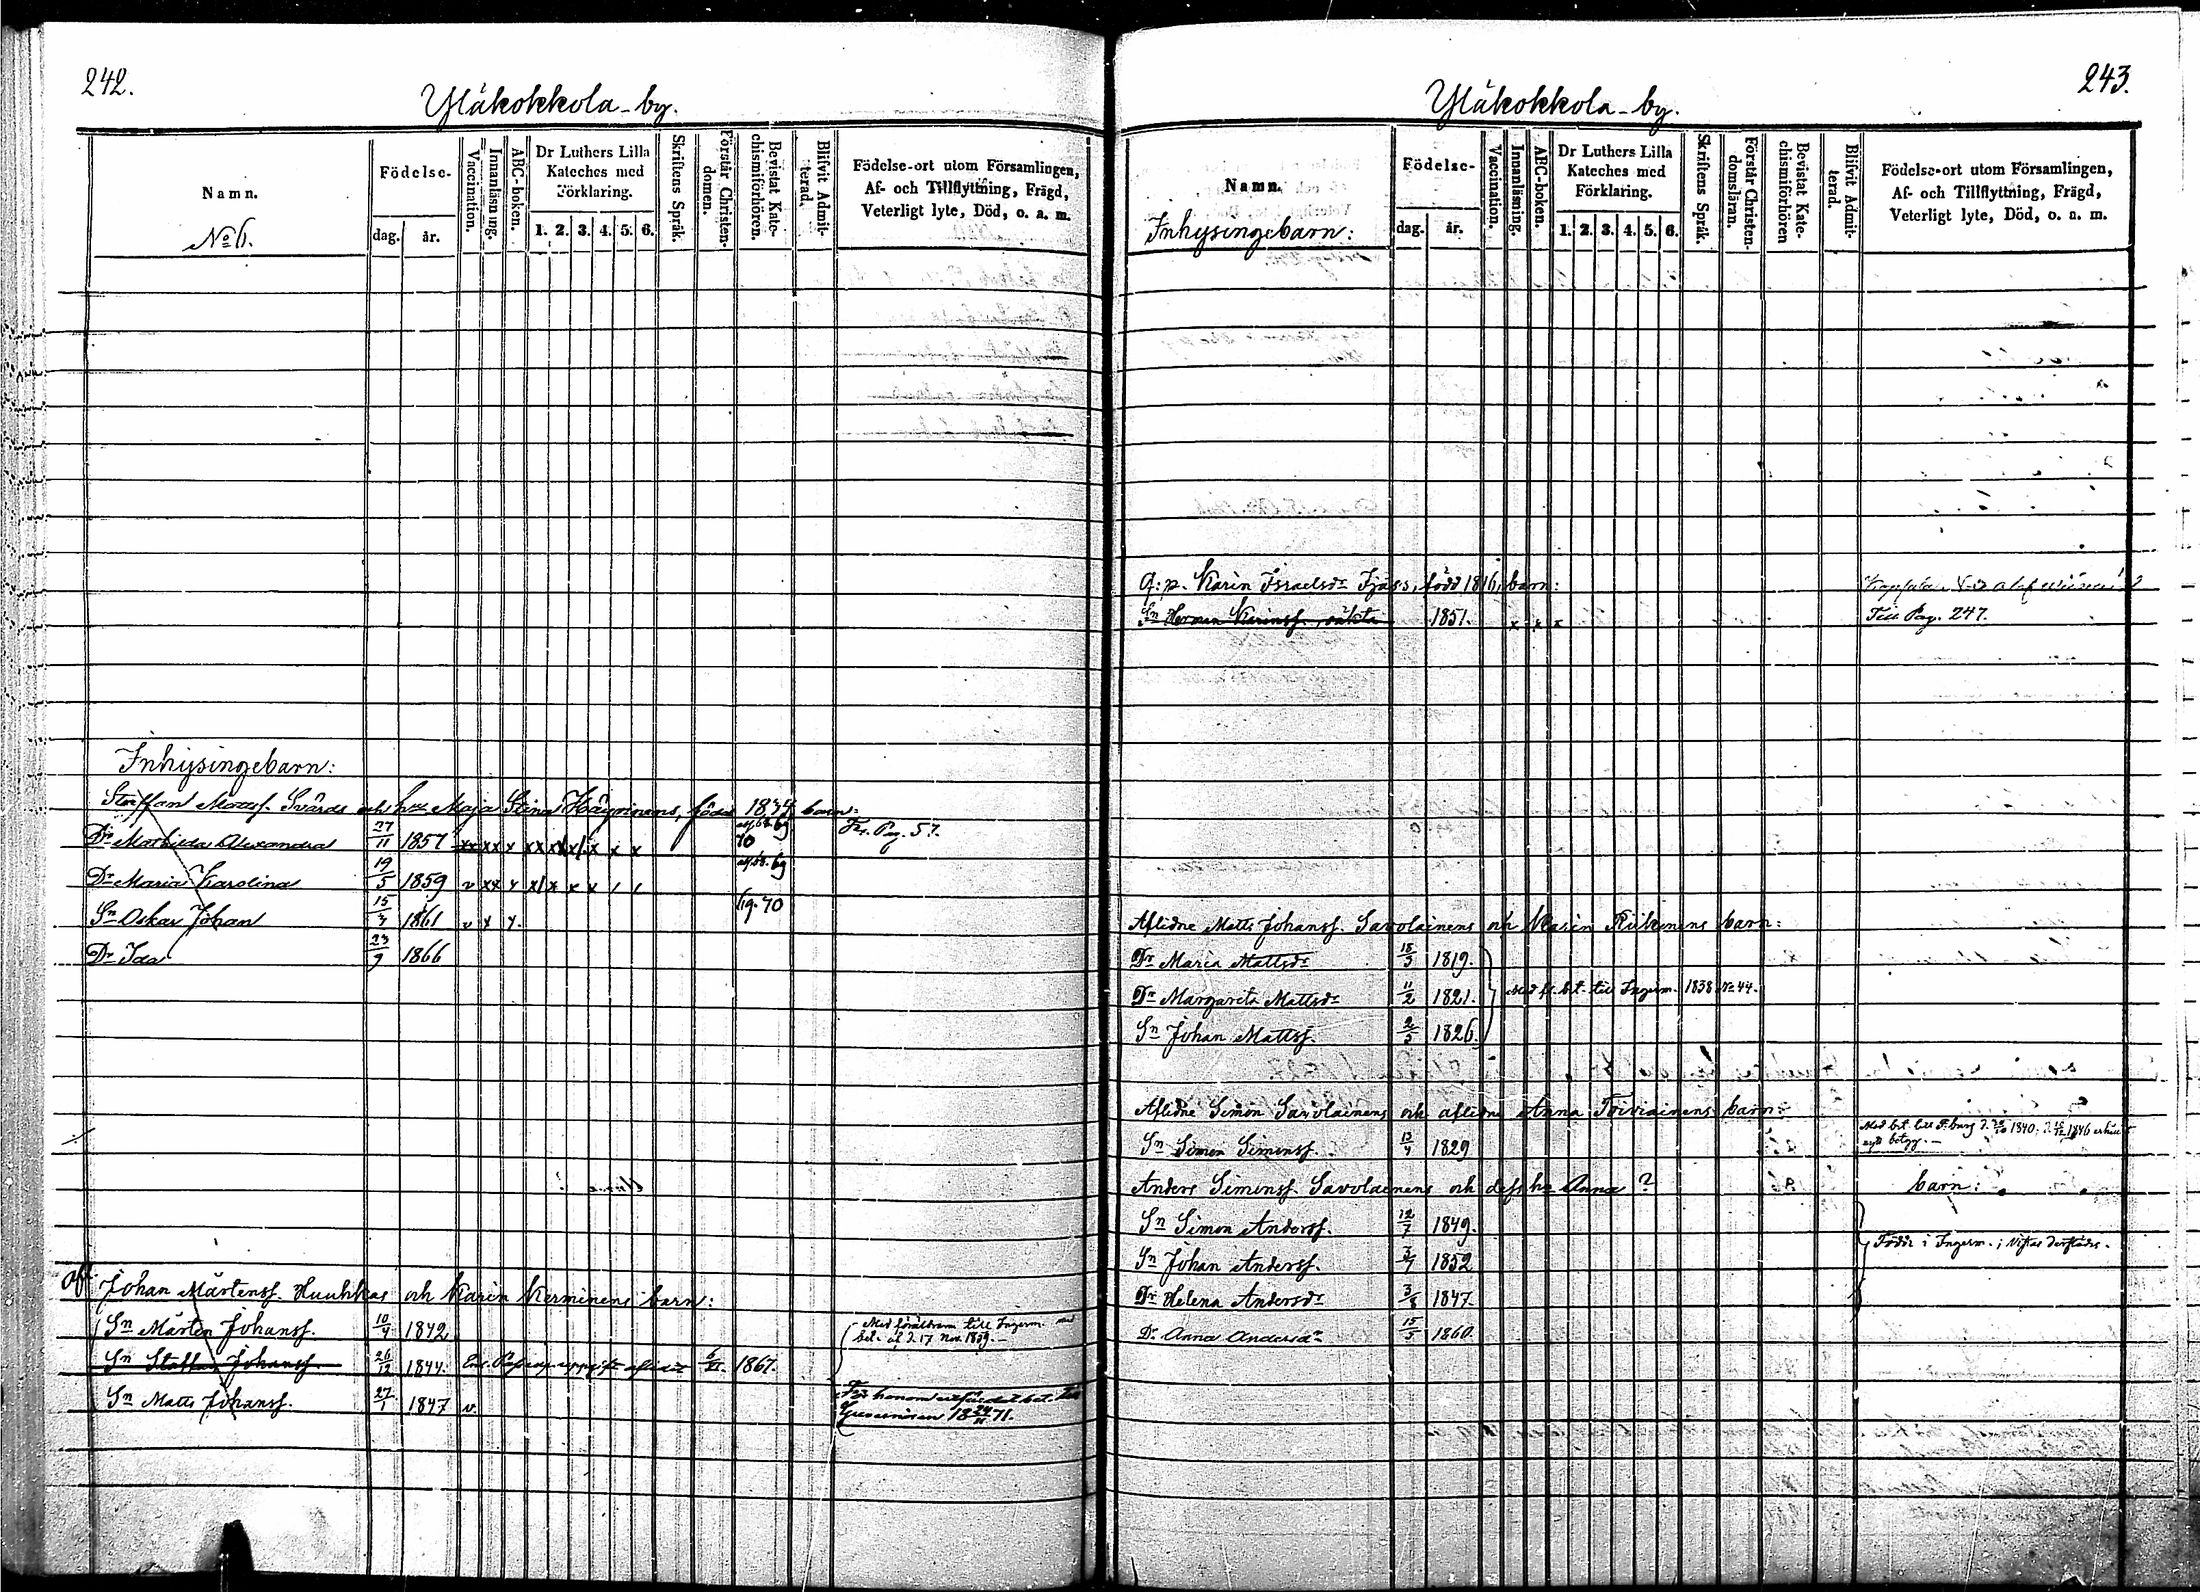 242.
Yläkokkola-by.
Namn.
No 6.
Födelse-
dag. år.
Vaccination.
Innanläsning.
ABC-boken.
Dr Luthers Lilla
Kateches med
Förklaring.
1. 2. 3. 4. 5. 6.
Skriftens Språk.
Förstår Christen-
domen.
Bevistat Kate-
chismiförhören.
Blifvit Admit-
terad.
Födelse-ort utom Församlingen,
Af- och Tillflyttning, Frägd,
Veterligt lyte, Död, o. a. m.
Inhysingebarn:
Staffan Mattss. Svärds och h:u Maja Stina Häyrinens, född 1834, barn:
Dr Mathilda Alexandra 27/11 1857 xx xx x xx x x x x 69 70 Fr. Pag. 57.
Dr Maria Karolina 19/5 1859 v xx x x x x x 69
Sn Oskar Johan 15/7 1861 v x x. 69. 70
Dr Ida 23/9 1866
Johan Mårtenss. Huuhkas och Karin Kerminens barn:
Sn Mårten Johanss. 10/4 1842 Med föräldrarn till Ingerm. med
bet. af d. 17 Nov. 1859.
Sn Staffan Johanss. 26/12 1844. uppgift aflidit 6/VI. 1867.
Sn Matts Johanss. 27/1 1847 v. För honom utfärdat bet. till
1871.
243.
Yläkokkola-by.
Namn.
Inhysingebarn:
Födelse-
dag. år.
Vaccination.
Innanläsning.
ABC-boken.
Dr Luthers Lilla
Kateches med
Förklaring.
1. 2. 3. 4. 5. 6.
Skriftens Språk.
Förstår Christen-
domsläran.
Bevistat Kate-
chismiförhören
Blifvit Admit-
terad.
Födelse-ort utom Församlingen,
Af- och Tillflyttning, Frägd,
Veterligt lyte, Död, o. a. m.
Q: p. Karin Israelsdr Fjäss, född 1816, barn:
Sn Herman Karinss. oäkta 1851. x x x Till Pag. 247.
Aflidne Matts Johanss. Savolainens och Karin Riikonens barn:
Dr Maria Mattsdr 18/3 1819.
Dr Margareta Mattsdr 11/2 1821. Med fr. bet. till Ingerm. 1838 No 44.
Sn Johan Mattss. 2/5 1826.
Aflidne Simon Savolainens och aflidne Anna Toiviainens barn:
Sn Simon Simonss. 13/4 1829 Med bet. till P.burg d. 1840. d. 1846 erhållit
nytt betyg.
Anders Simonss. Savolainens och dess h:u Anna ? barn:
Sn Simon Anderss. 12/7 1849.
Sn Johan Anderss. 3/7 1852 Födde i Ingerm.; vistas derstädes.
Dr Helena Andersdr 3/8 1847.
Dr Anna Andersdr 15/5 1860.